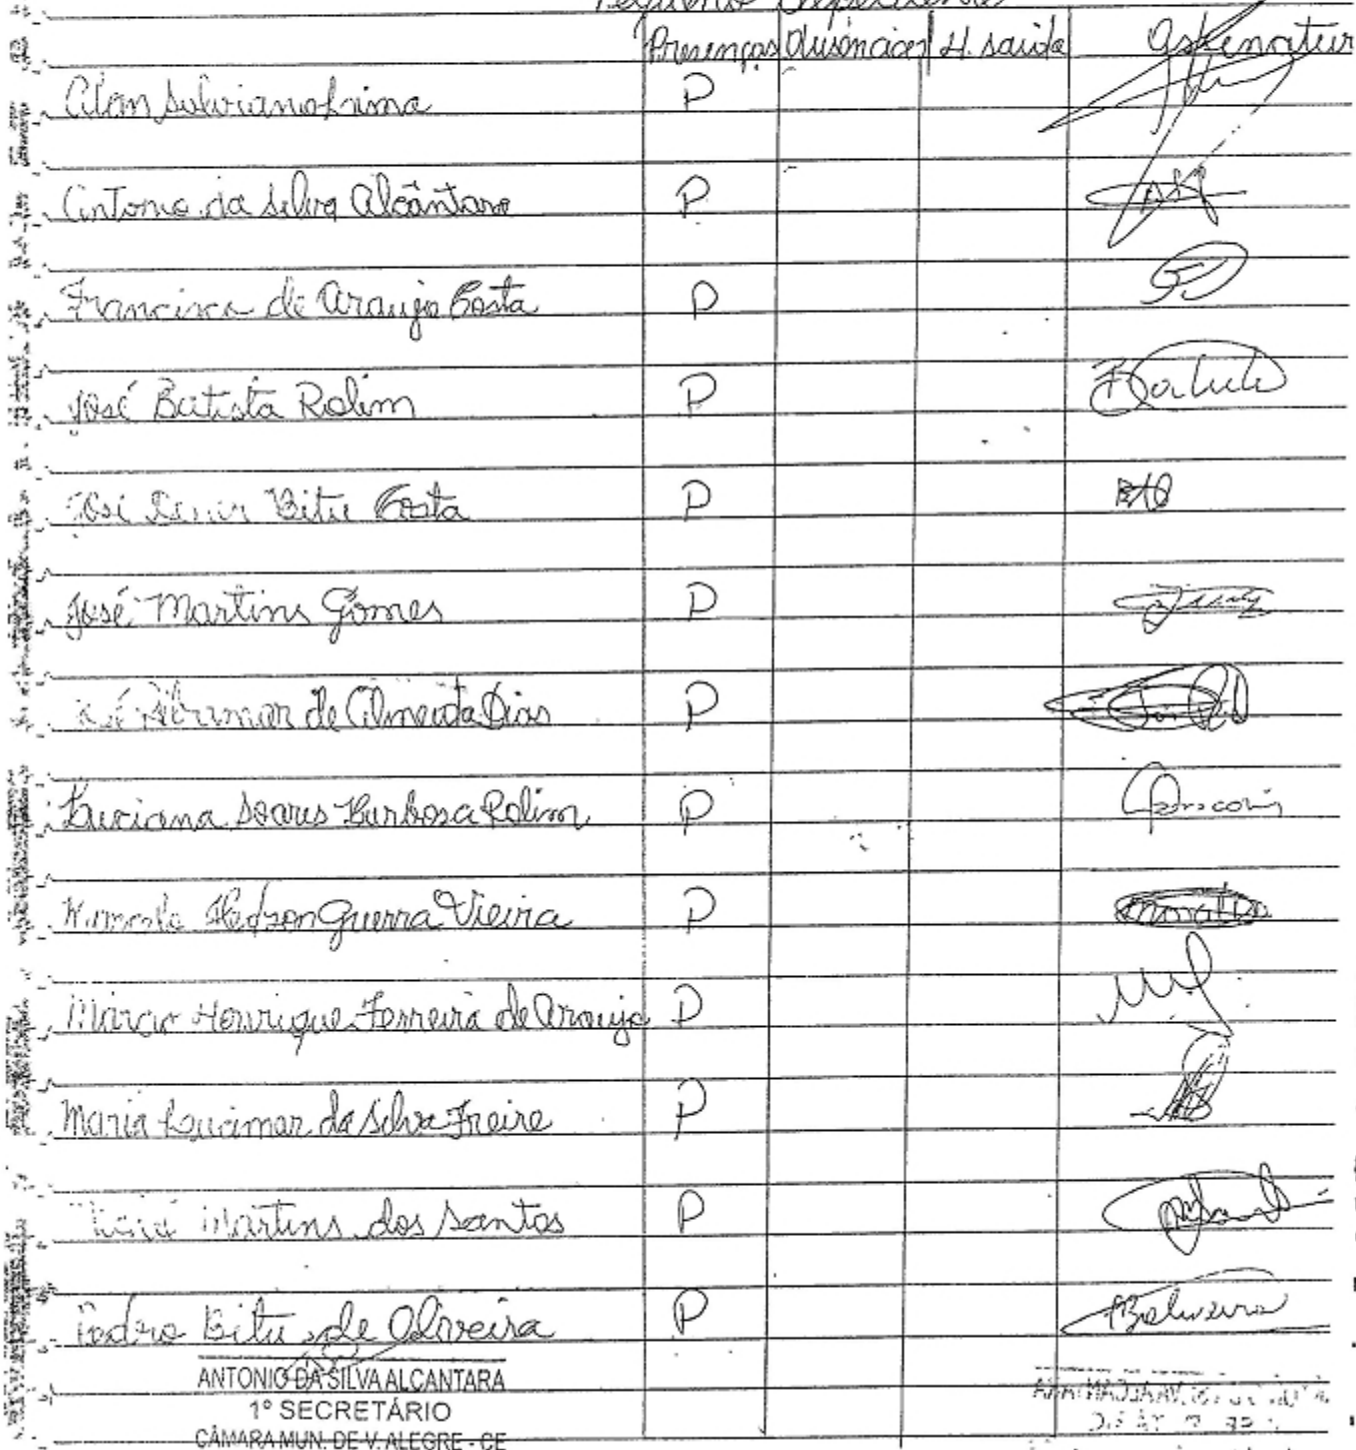 Pequeno Expediente
Presenças Ausências H. saida Assinatur
Alan Salviano Lima P
Antonio da Silva Alcântara P
Francisco de Araujo Costa P
José Batista Rolim P
José Bitu Costa P
José Martins Gomes P
de Almeida Dias P
Luciana Soares Barbosa Rolim P
Guerra Vieira P
Márcio Henrique Ferreira de Araujo P
Maria Lucimar da Silva Freire P
Martins dos Santos P
Pedro Bitu de Oliveira P
ANTONIO DA SILVA ALCANTARA
1º SECRETÁRIO
CÂMARA MUN. DE V. ALEGRE - CE